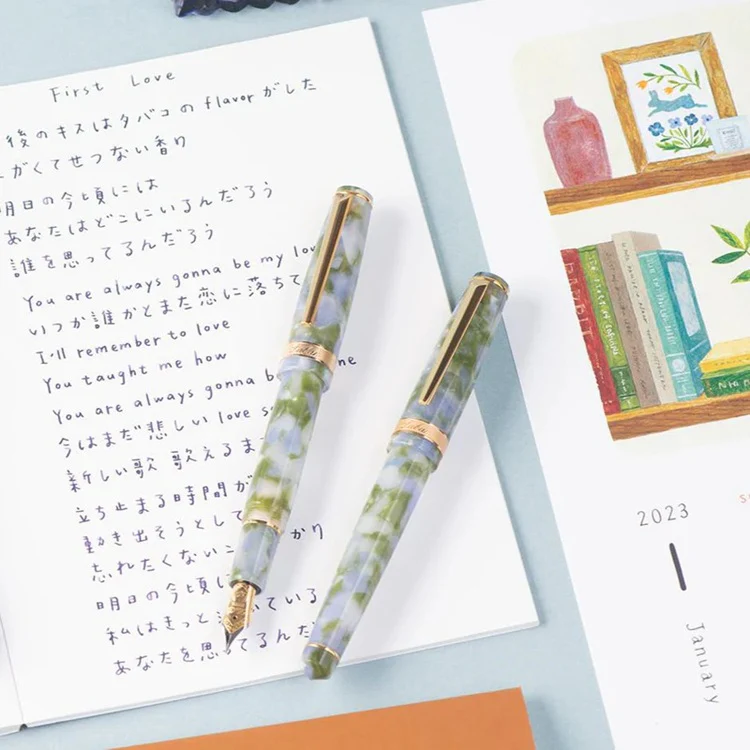 First Love
後のキスはタバコの flavor がした
がくてせつない香り
明日の今頃には
あなたはどこにいるんだろう
誰を思ってるんだろう
You are always gonna be my lo
いつか誰かとまた恋に落ちて
I'll remember to love
You taught me how
You are always gonna b ne
今はまだ悲しい love s
新しい歌 歌えるま
立ち止まる時間が
動き出そうとして
忘れたくないこ かり
明日の今頃に
私はきっと いている
あなたを思ってるんだ
2023
1
January
RABBIT